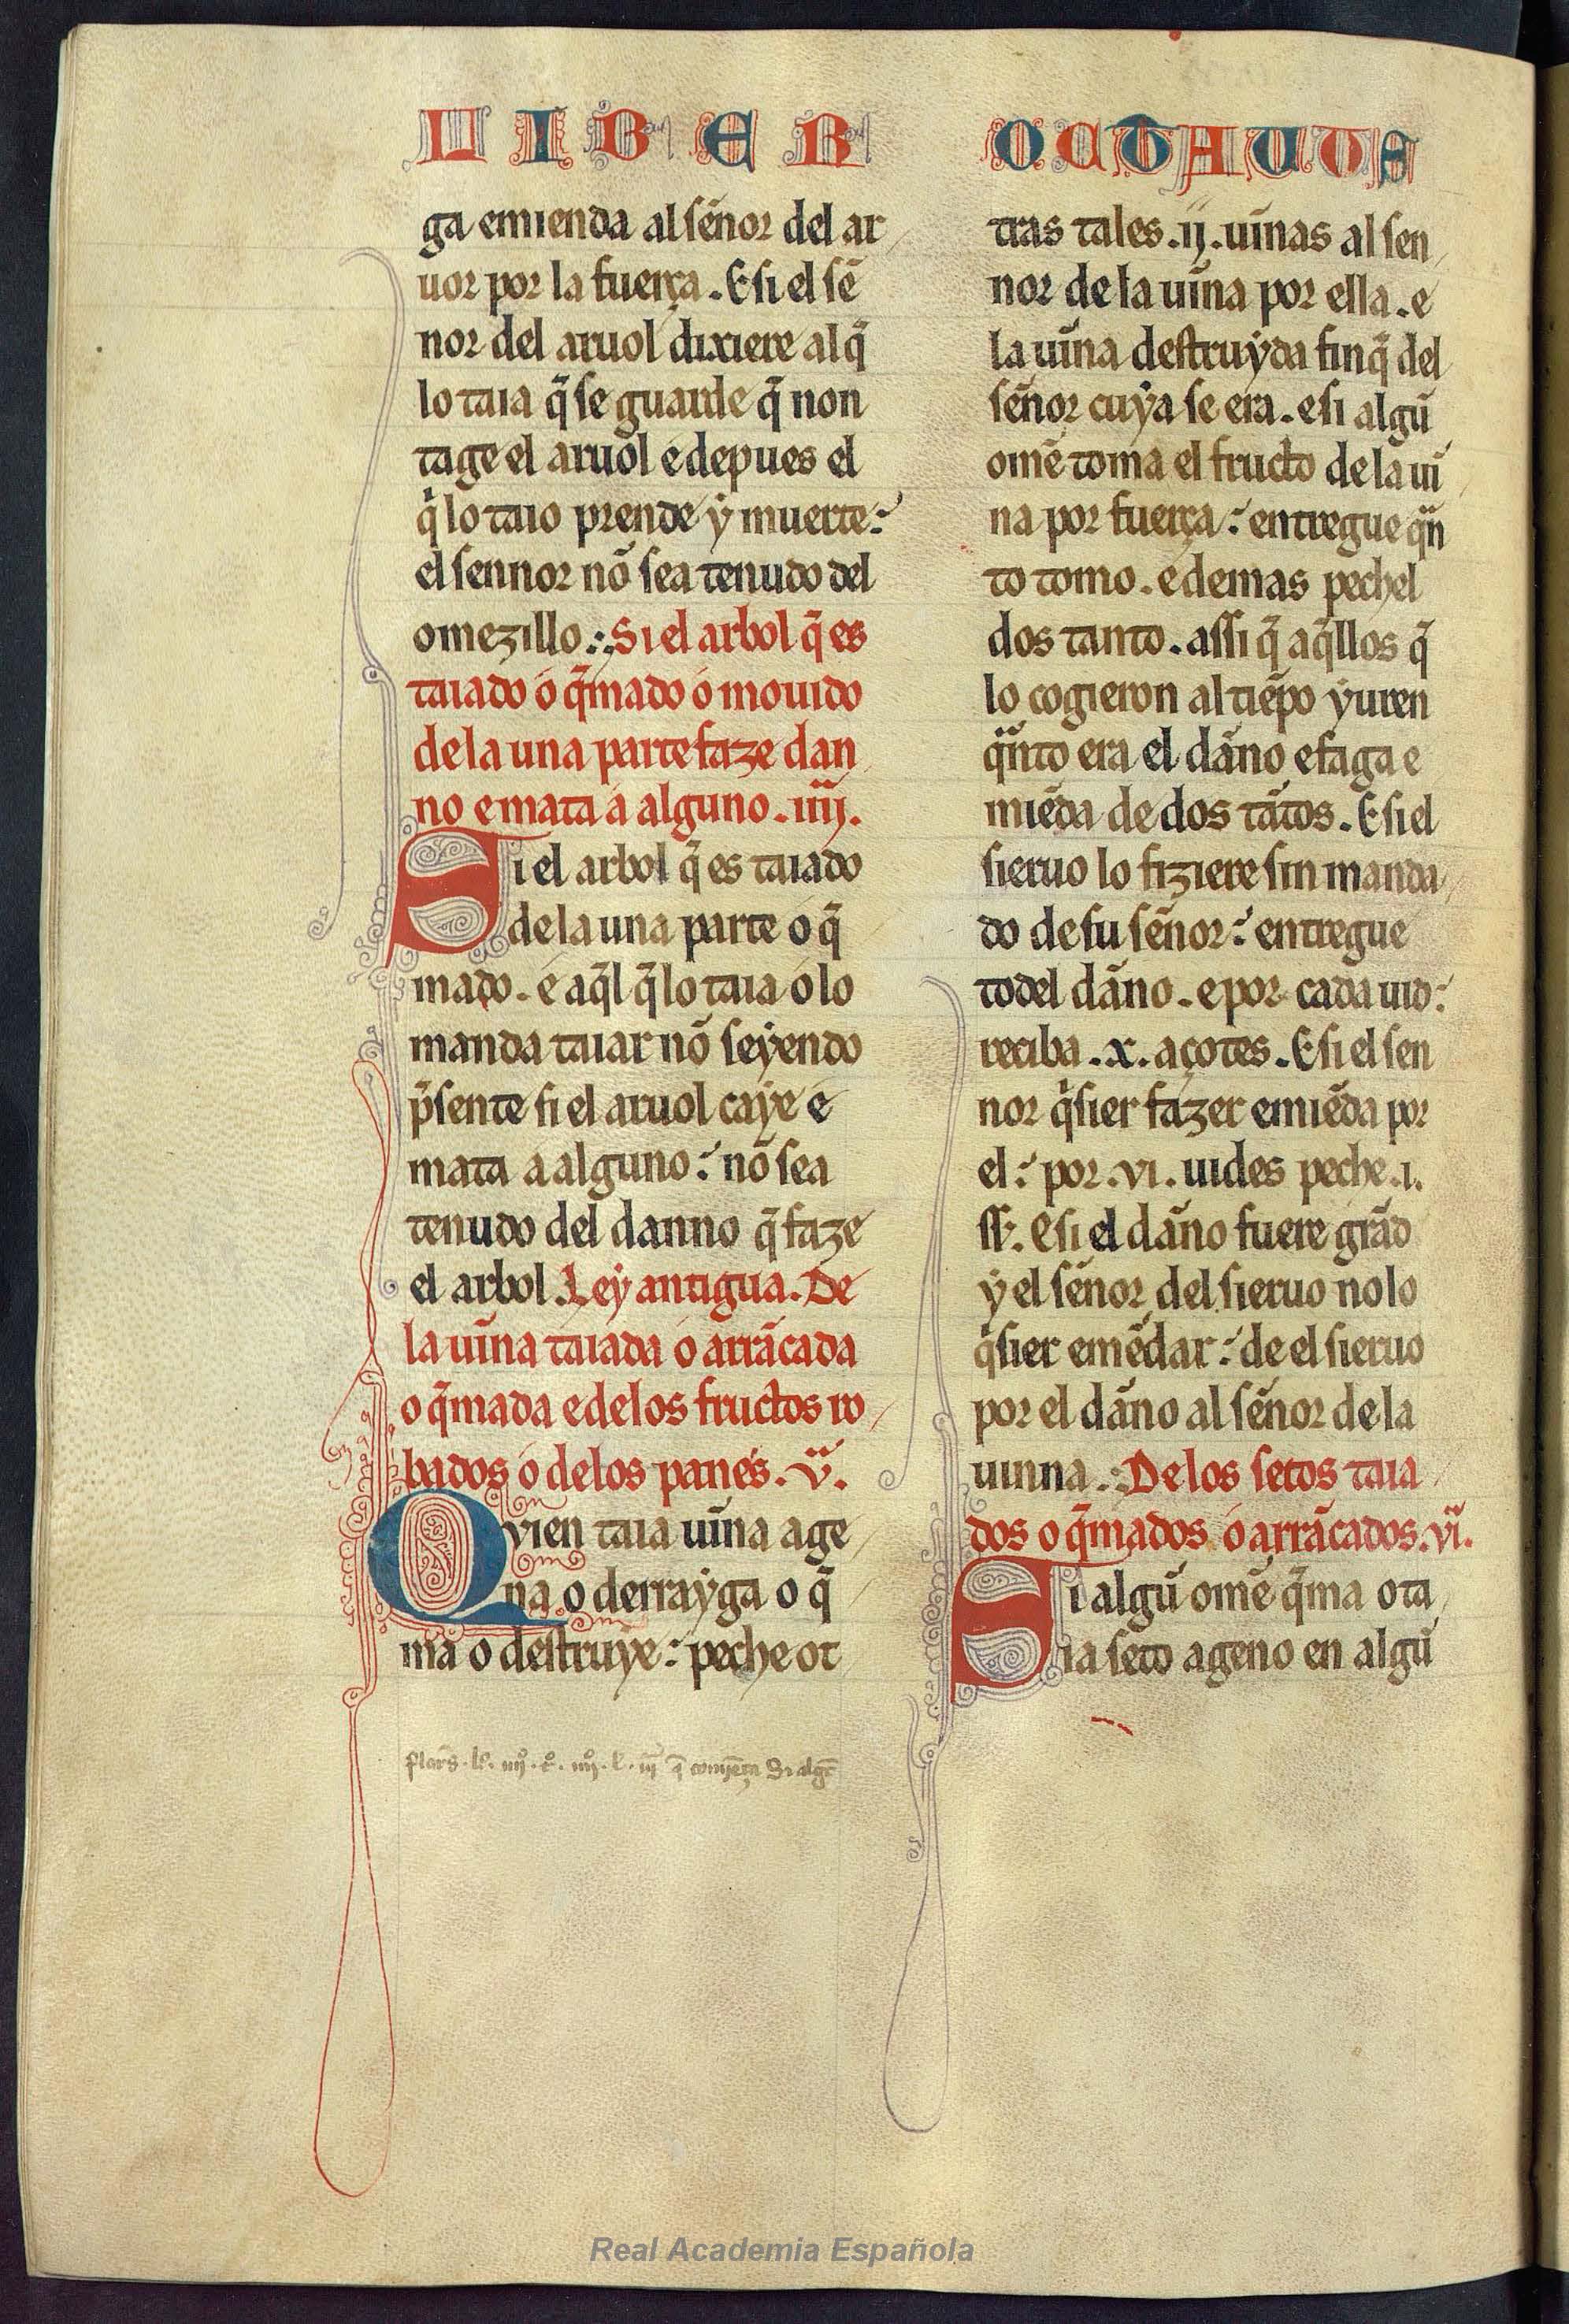 LIBER OCTAUUS
ga emienda al sẽnor del ar
uor por la fuerça. E si el sẽ
nor del aruol dixiere al q̃
lo taia q̃ se guarde q̃ non
tage el aruol e depues el
q̃ lo taio prende ẏ muerte:
el sennor nõ sea tenudo del
omezillo. Si el arbol q̃ es
taiado ó q̃mado o mouido
de la una parte faze dan
no e mata á alguno. iiij.
Si el arbol q̃ es taiado
de la una parte o q̃
mado. é aq̃l q̃ lo taia o lo
manda taiar nõ seẏendo
p̃sente si el aruol caẏe é
mata a alguno: nõ sea
tenudo del danno q̃ faze
el arbol. Leẏ antigua. De
la uĩna taiada ó arrãcada
o q̃mada e delos fructos ro
bados ó delos panes. v.
Quien taia uĩna age
na o derraẏga o q̃
ma o destruẏe: peche ot
tras tales .ij. uĩnas al sen
nor de la uĩna por ella. e
la uĩna destruẏda finq̃ del
sẽnor cuẏa se era. e si algũ
omẽ toma el fructo de la ui
na por fuerça: entregue qñ
to tomo. e demas pechel
dos tanto. assi q̃ aq̃llos q̃
lo cogieron al tiẽpo ẏuren
qñto era el dãno e faga e
miẽda de dos tãtos. E si el
sieruo lo fiziere sin manda
do de su sẽnor: entregue
todel dãno. e por cada uid:
reciba .x. açotes. E si el sen
nor q̃sier fazer emiẽda por
el: por .vi. uides peche .i.
ss. E si el dãno fuere grãd
ẏ el sẽnor del sieruo no lo
q̃sier emẽdar: de el sieruo
por el dãno al sẽnor de la
uinna. De los setos taia
dos o q̃mados ó arrãcados. vi.
Si algũ omẽ q̃ma o ta
ia seto ageno en algũ
Real Academia Española